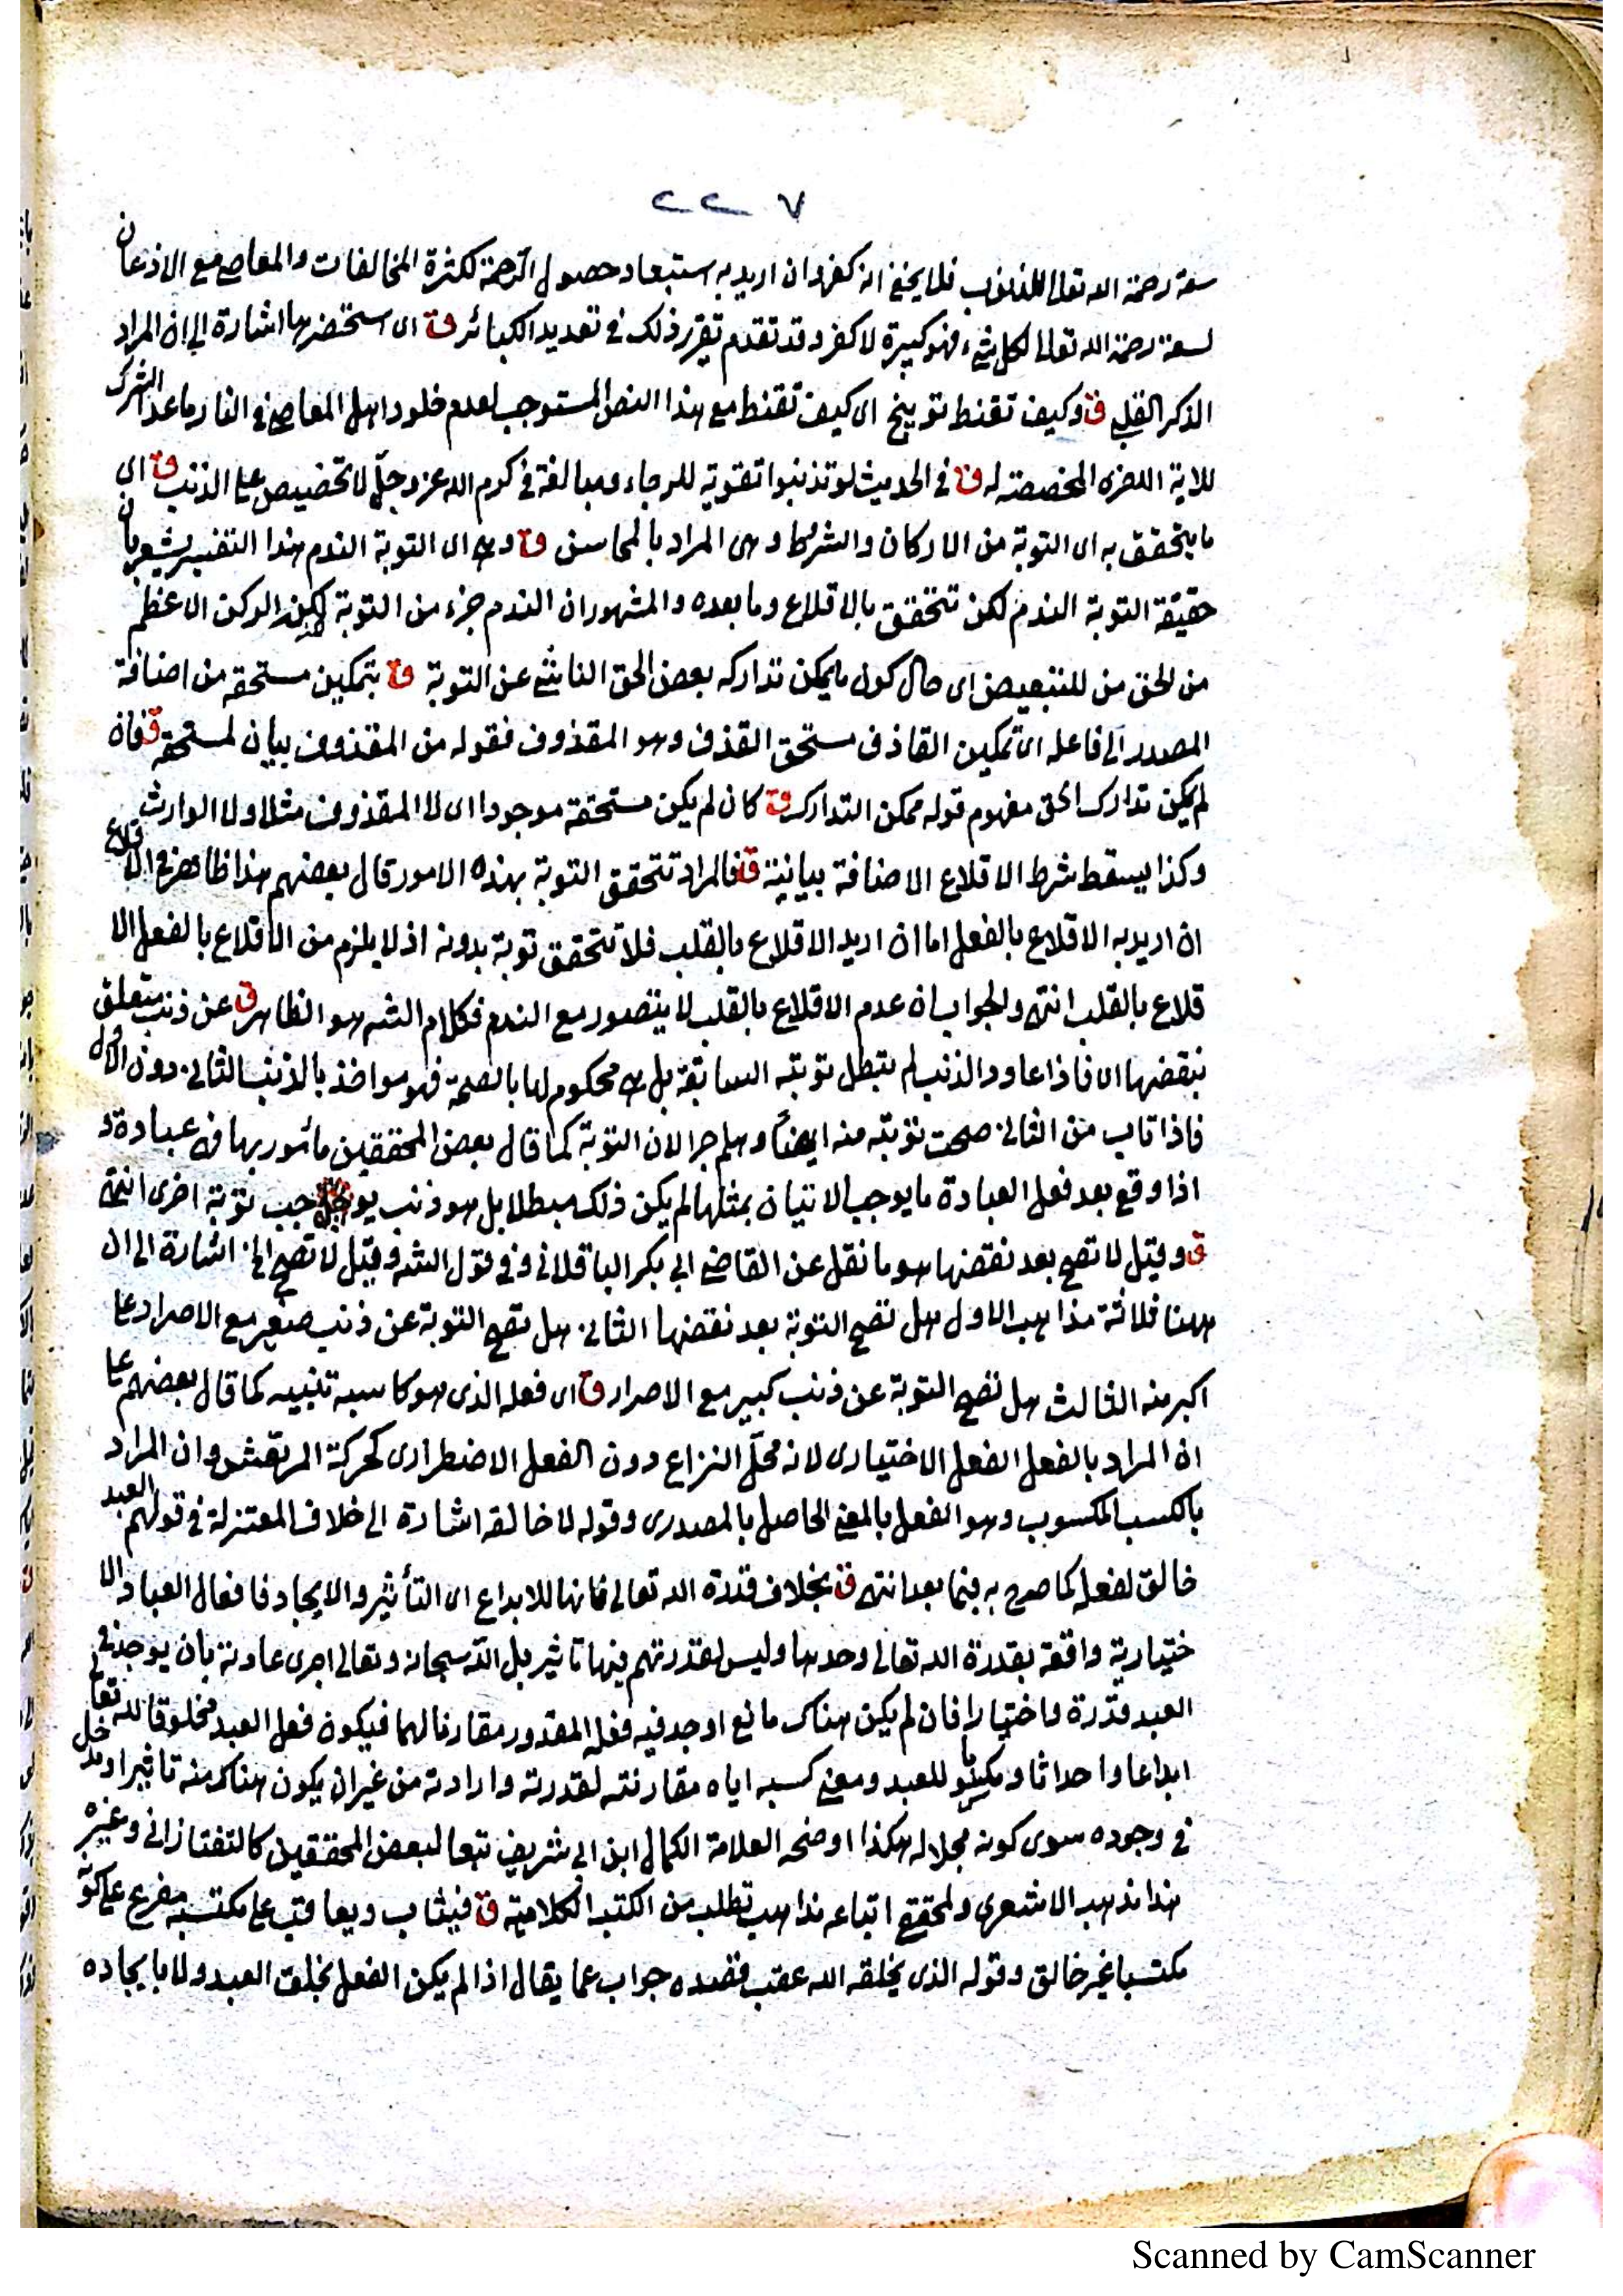 ٢٢٧
سعة رحمة الله تعالى للذنوب فلا يخفى انه كفر وان اريد به استبعاد حصول الرحمة لكثرة المخالفات والمعاصي مع الاذعان
لسعة رحمة الله تعالى لكل شيء فهو كبيرة لا كفر وقد تقدم تقرر ذلك في تعديد الكبائر قة اى استحضرها اشارة الى ان المراد
الذكر القلبي قة وكيف تقنط توبيخ اى كيف تقنط مع هذا النص المستوجب لعدم خلود اهل المعاصي في النار ما عدا الشرك
للاية الاخرى المخصصة له قة في الحديث لو تذنبوا تقوية للرجاء ومبالغة في كرم الله عز وجل لا تخضيص على الذنب قة اى
ما يتحقق به اى التوبة من الاركان والشرط وهى المراد بالمحاسن قة وهى اى التوبة الندم هذا التفسير يشعر بان
حقيقة التوبة الندم لكن تتحقق بالاقلاع وما بعده والمشهور ان الندم جزء من التوبة لكن الركن الاعظم
من الحق من للتبعيض اى حال كون ما يمكن تداركه بعض الحق الناشئ عن التوبة قة بتمكين مستحقه من اضافة
المصدر الى فاعله اى تمكين القاذف مستحق القذف وهو المقذوف فقوله من المقذوف بيان لمستحقه قة فان
لم يمكن تدارك الحق مفهوم قوله ممكن التدارك قة كان لم يكن مستحقه موجودا اى لا المقذوف مثلا ولا الوارث
وكذا يسقط شرط الاقلاع الاضافة بيانية قة فالمراد تتحقق التوبة بهذه الامور قال بعضهم هذا ظاهر في الاقلاع
ان اريد به الاقلاع بالفعل اما ان اريد الاقلاع بالقلب فلا تتحقق توبة بدونه اذ لا يلزم من الاقلاع بالفعل الا
قلاع بالقلب انتهى والجواب ان عدم الاقلاع بالقلب لا يتصور مع الندم فكلام الشه هو الظاهر قة عن ذنب متعلق
بنقضها اى فاذا عاود الذنب لم تبطل توبته السابقة بل هى محكوم لها بالصحة فهو مواخذ بالذنب الثاني دون الاول
فاذا تاب من الثاني صحت توبته منه ايضا وهلم جرا لان التوبة كما قال بعض المحققين مأمور بها فهى عبادة و
اذا وقع بعد فعل العبادة ما يوجب الاتيان بمثلها لم يكن ذلك مبطلا بل هو ذنب يو جب توبة اخرى انتهى
قة وقيل لا تصح بعد نقضها هو ما نقل عن القاضي ابي بكر الباقلاني وفي قول الشه وقيل لا تصح الخ اشارة الى ان
ههنا ثلاثة مذاهب الاول هل تصح التوبة بعد نقضها الثاني هل تصح التوبة عن ذنب صغير مع الاصرار على
اكبر منه الثالث هل تصح التوبة عن ذنب كبير مع الاصرار قة اى فعله الذى هو كاسبه تنبيه كما قال بعضهم على
ان المراد بالفعل الفعل الاختيارى لانه محل النزاع دون الفعل الاضطرارى كحركة المرتعش وان المراد
بالكسب المكسوب وهو الفعل بالمعنى الحاصل بالمصدرى وقوله لا خالقه اشارة الى خلاف المعتزلة في قولهم العبد
خالق لفعله كما صرح به فيما بعد انتهى قة بخلاف قدرة الله تعالى فانها للابداع اى التأثير والايجاد فافعال العباد الا
ختيارية واقعة بقدرة الله تعالى وحدها وليس لقدرتهم فيها تأثير بل الله سبحانه وتعالى اجرى عادته بان يوجد في
العبد قدرة واختيارا فان لم يكن هناك مانع اوجد فيه فعله المقدور مقارنا لهما فيكون فعل العبد مخلوقا لله تعالى
ابداعا واحداثا و للعبد ومعنى كسبه اياه مقارنته لقدرته وارادته من غير ان يكون هناك منه تأثير او مدخل
في وجوده سوى كونه محلا له هكذا اوضحه العلامة الكمال ابن ابي شريف تبعا لبعض المحققين كالتفتازاني وغيره
هذا مذهب الاشعرى ولمحققي اتباعه مذاهب تطلب من الكتب الكلامية قة فيثاب ويعاقب على مكتسبه مفرع على كونه
مكتسبا غير خالق وقوله الذى يخلقه الله عقب قصده جواب عما يقال اذا لم يكن الفعل بخلق العبد ولا بايجاده
Scanned by CamScanner